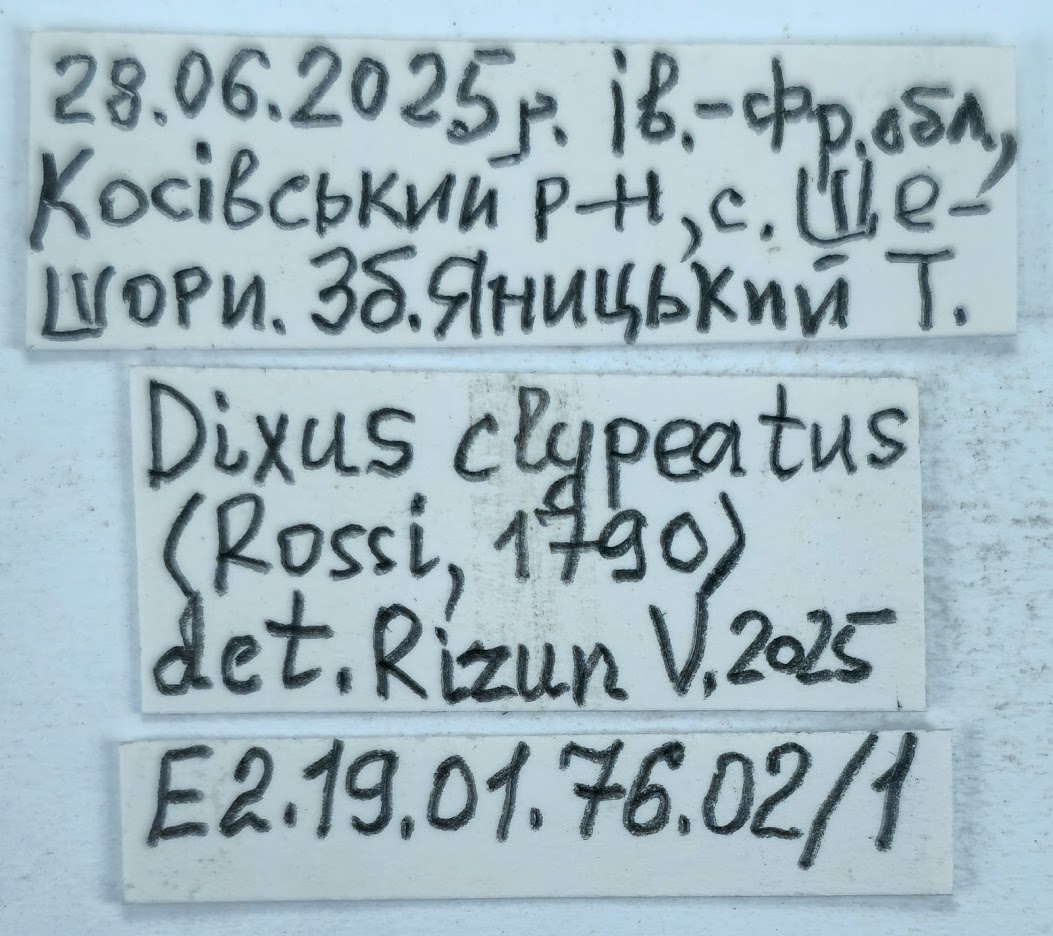 28.06.2025р. ів.-Фр.обл,
Косівський р-н, с. Ше-
шори. Зб. Яницький Т.
Dixus clypeatus
(Rossi, 1790)
det. Rizun V. 2025
E2.19.01.76.02/1